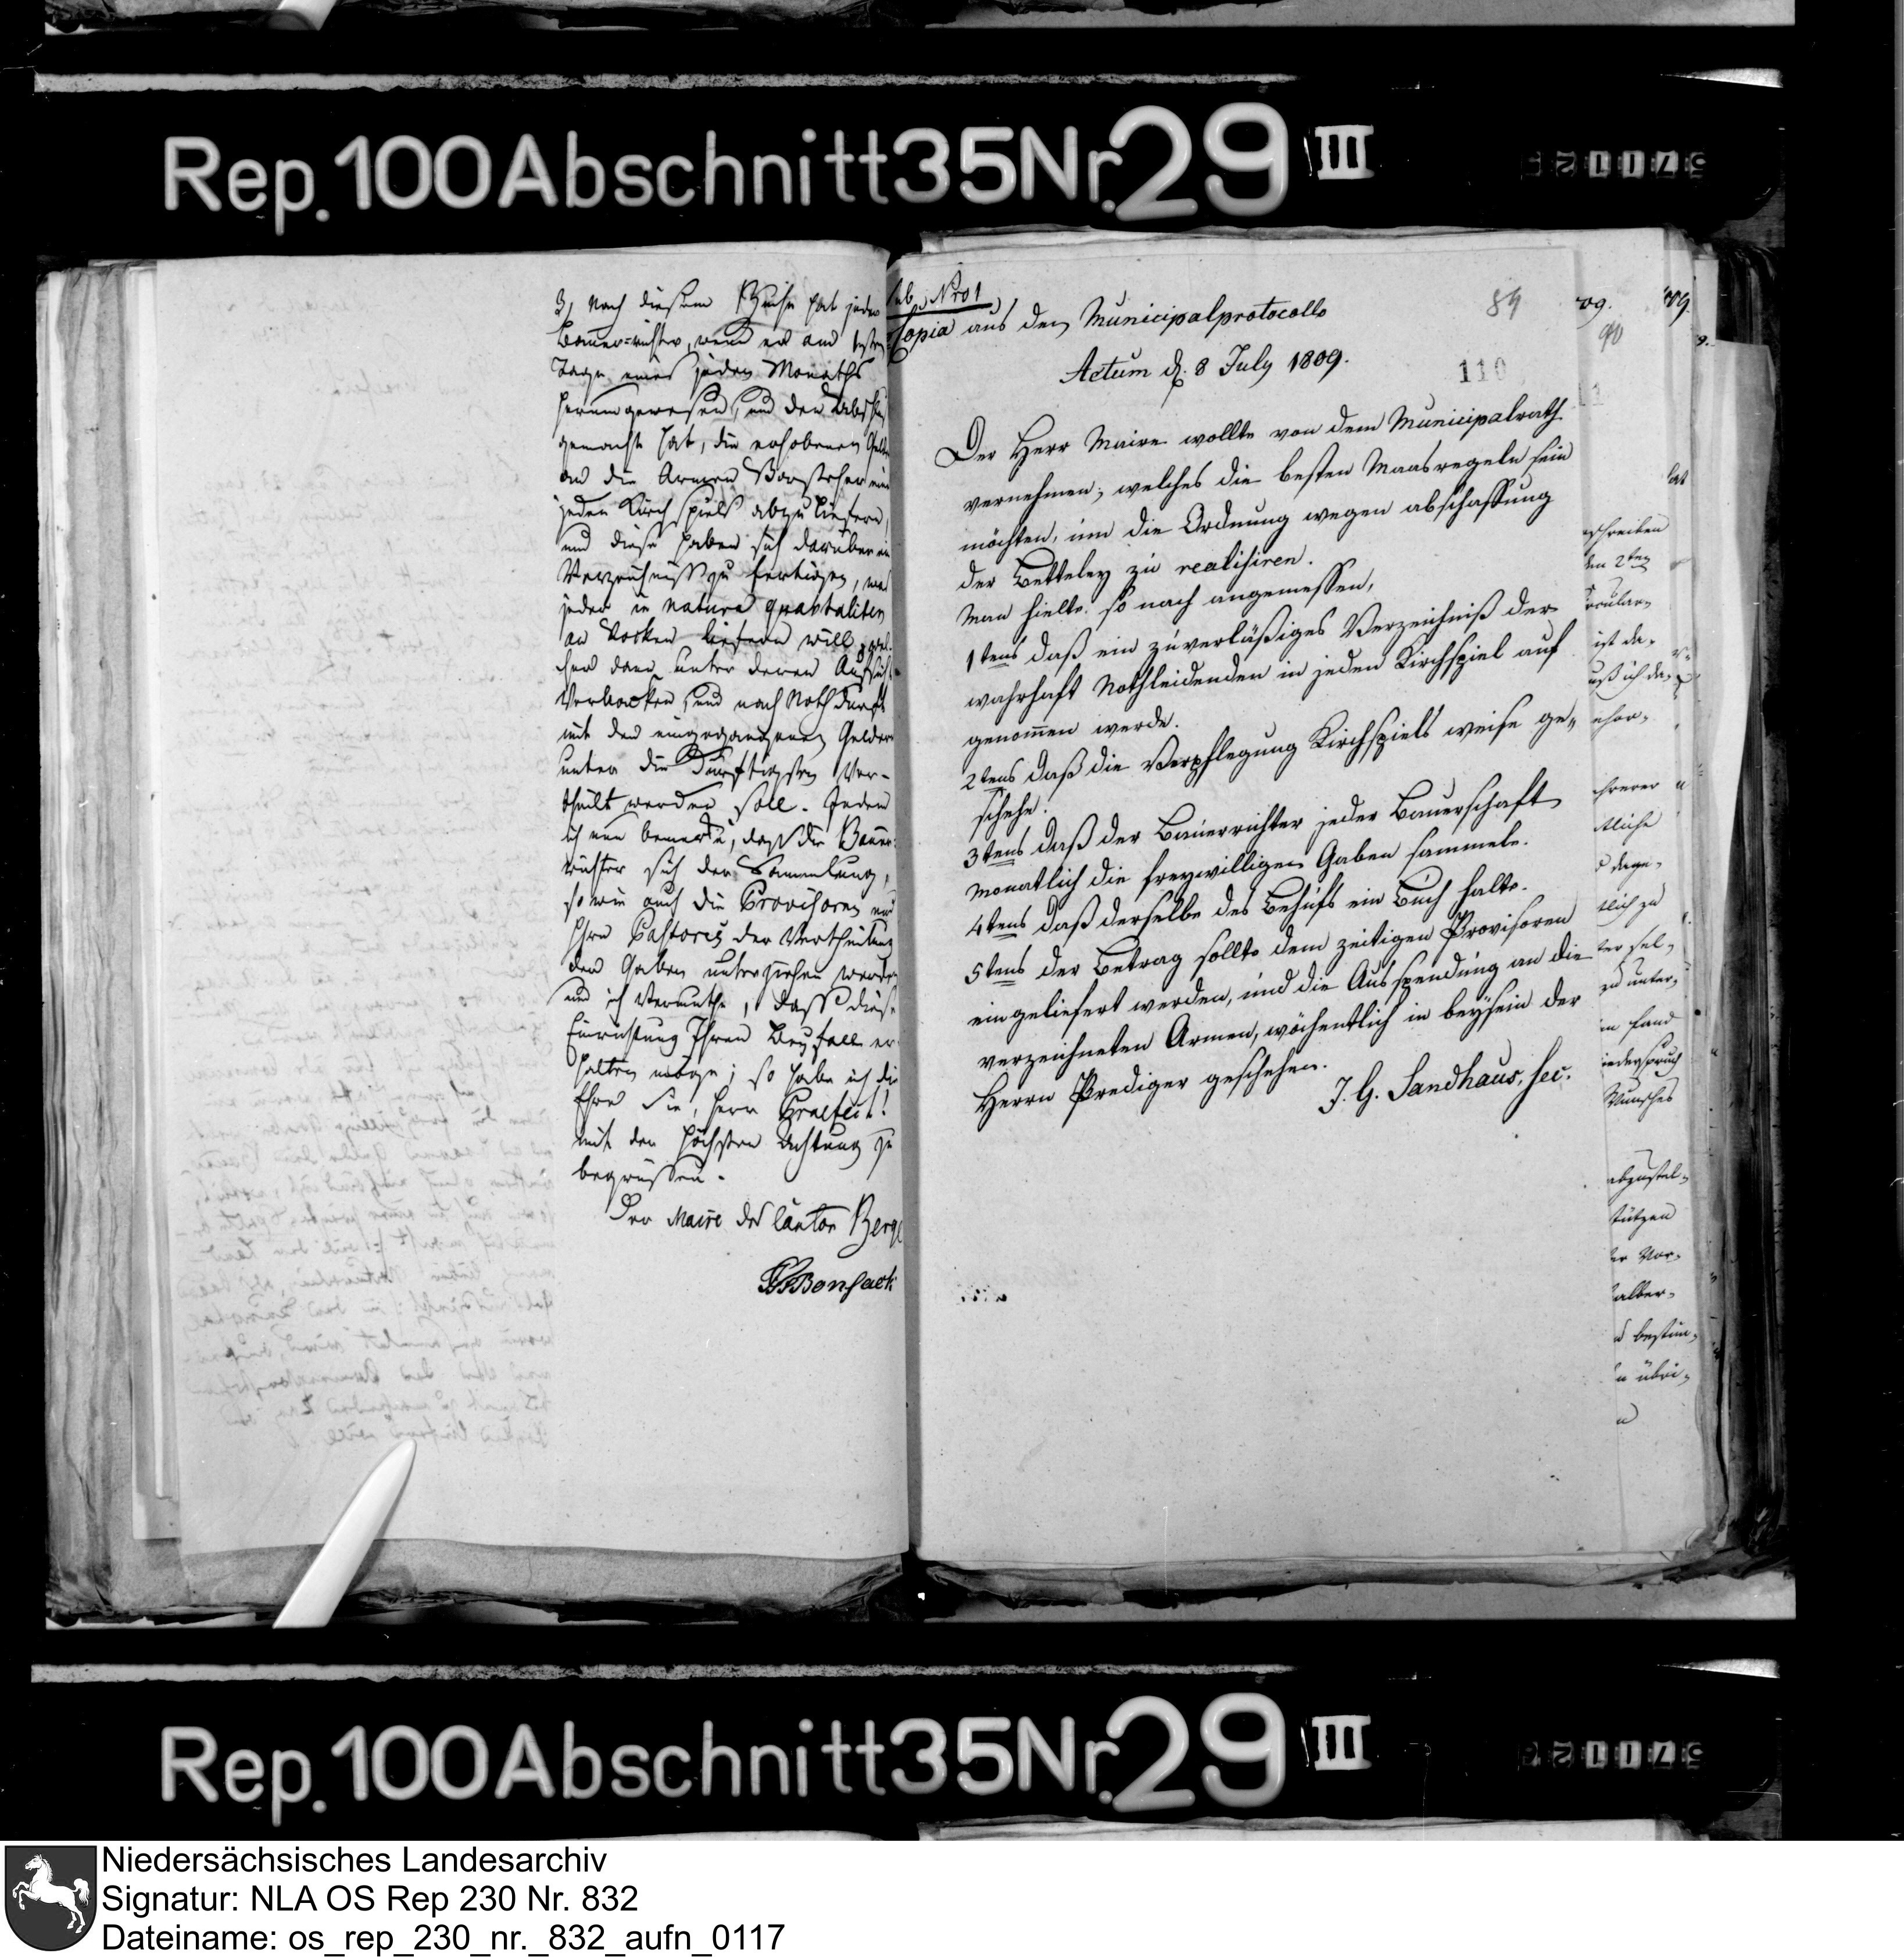 Rep. 100 Abschnitt 35 Nr. 29 III
3, Nach diesem Buche hat jeder
Bauer=richter, wenn er am ersten
Tage eines jeden Monaths
herumgewesen, und den Abschluß
gemacht hat, die erhobenen Gelder
an die Armen Vorsteher eines
jeden Kirchspiels abzuliefern,
und diese haben sich darüber ein
Verzeichniß zu fertigen, was
jeder in natura quartaliter
an Rocken liefern will,
dann unter deren Aufsicht
Verbacken, und nach Nothdurft
mit den eingegangenen Gelder
unter die Dürftigsten Ver-
theilt werden soll. Indem
ich nun bemerke, daß die Bauer-
richter sich der Sammlung,
so wie auch die Provisoren und
Ihre Pastores der Vertheilung
der Gaben unterziehen werden
und ich Vermuthe, daß diese
Einrichtung Ihren Beyfall er-
halten möge; so habe ich die
Ehre Sie, Herr Praefect!
mit der höchsten Achtung zu
begrüssen.
Der Maire des Canton Berge
Bonsack
sub Nro 1
Copia aus dem Municipalprotocolle
84
Actum d. 8 July 1809.
110
Der Herr Maire wollte von dem Municipalrath
vernehmen; welches die besten Maasregeln sein
möchten, um die Ordnung wegen abschaffung
der Betteley zu realisiren.
Man hielte so nach angemessen,
1tens daß ein zuverläßiges Verzeichniß der
wahrhaft Nothleidenden in jeden Kirchspiel auf
genommen werde.
2tens daß die Verpflegung Kirchspiels weise ge„
schehe.
3tens daß der Bauerrichter jeder Bauerschaft
monatlich die freywilligen Gaben sammele.
4tens daß derselbe des Behufs ein Buch halte.
5tens der Betrag sollte dem zeitigen Provisoren
eingeliefert werden, und die Ausspendung an die
verzeichneten Armen, wöchentlich in beysein der
Herrn Prediger geschehen.
J. G. Sandhaus, Sec.
90
Rep. 100 Abschnitt 35 Nr. 29 III
Niedersächsisches Landesarchiv
Signatur: NLA OS Rep 230 Nr. 832
Dateiname: os_rep_230_nr._832_aufn_0117